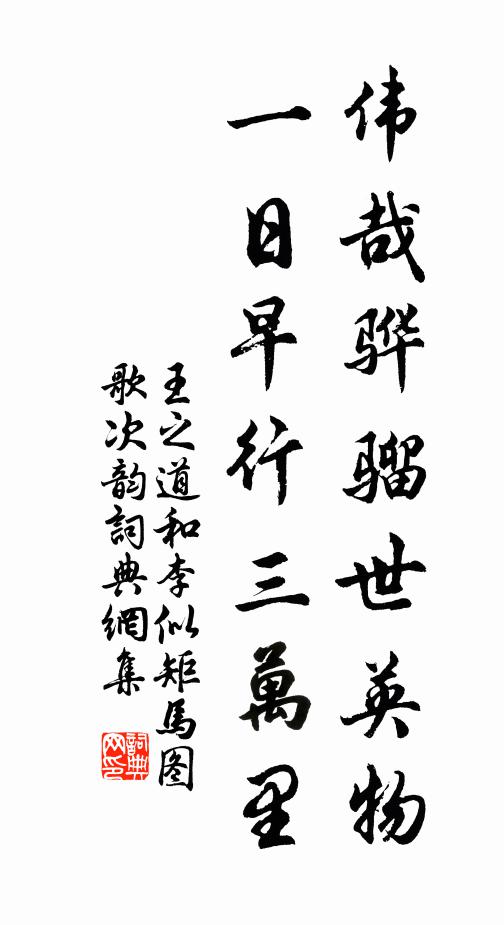 伟哉骅骝世英物
一日早行三萬里
王之道和李似矩馬图
歌次韵詞典網集
詞典网印